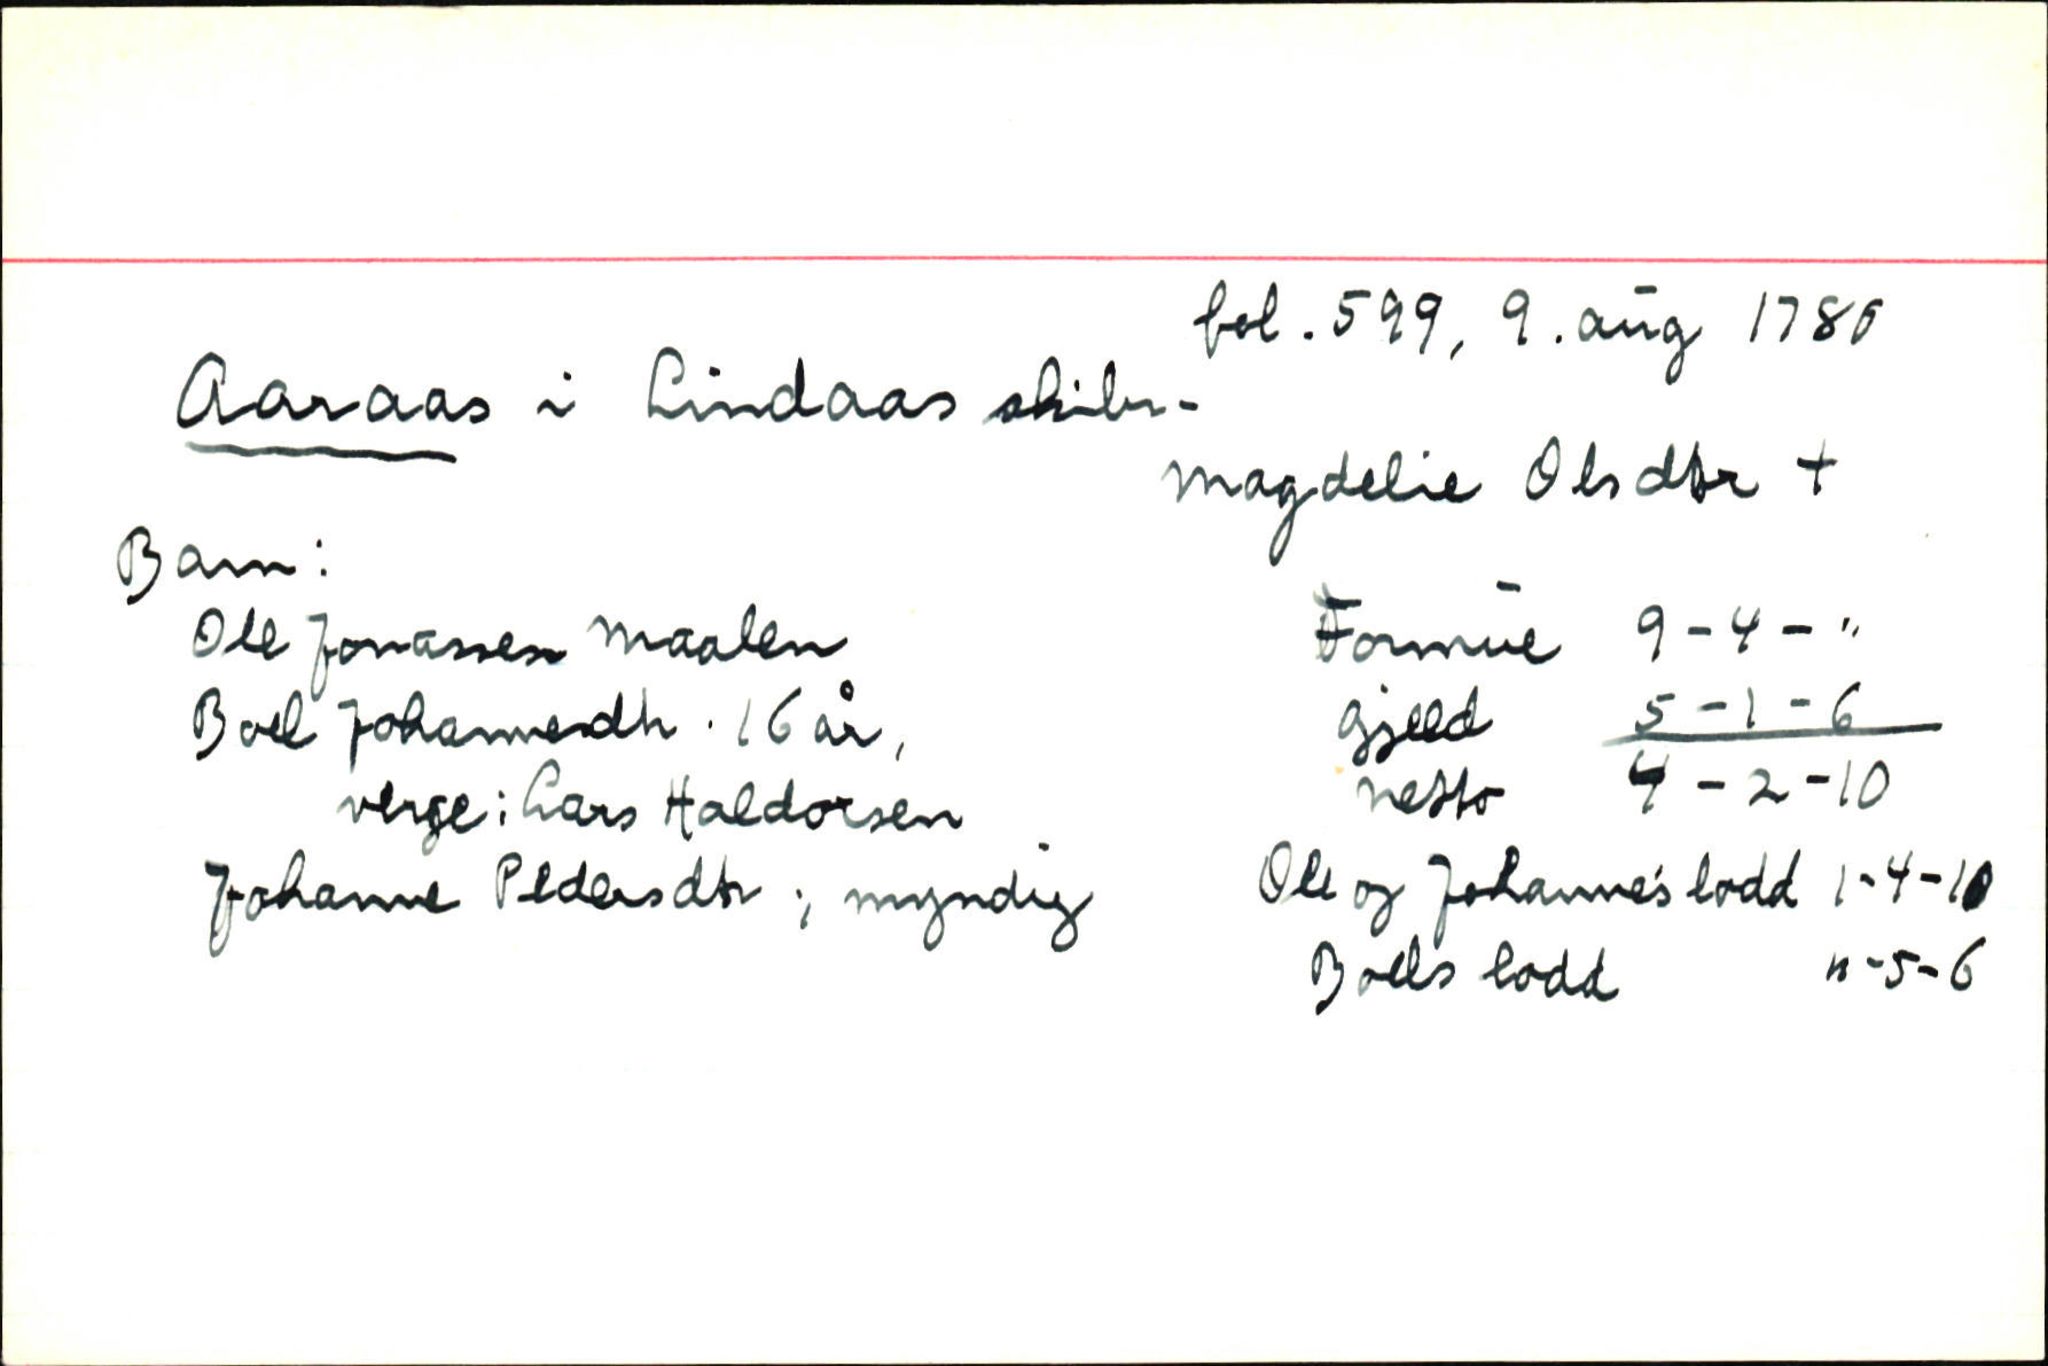 fol. 599, 9. aug 1786
Aaraas i Lindaas skibr-
Magdelie Olsdtr +
Barn:
Ole Jonassen Maalen
Boel Johannesdtr. 16 år,
verge: Lars Haldorsen
Johanne Pedersdtr; myndig
Formue 9-4-"
Gjeld 5-1-6
netto 4-2-10
Ole og Johanne's lodd 1-4-10
Boels lodd "-5-6